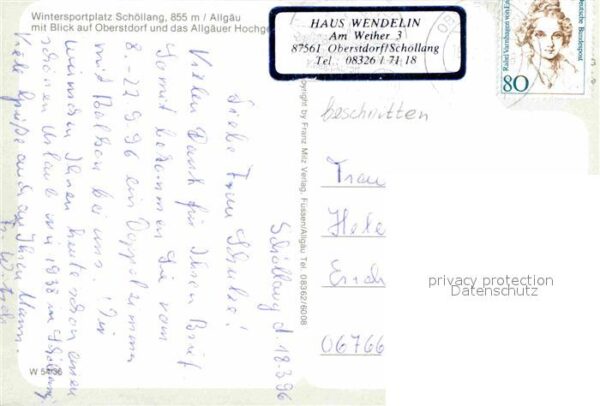 Wintersportplatz Schöllang, 855 m / Allgäu
mit Blick auf Oberstdorf und das Allgäuer Hochge
HAUS WENDELIN
Am Weiher 3
87561 Oberstdorf/Schöllang
Tel.: 08326 / 71 18
Rahel Varnhagen von Ense
80
Deutsche Bundespost
beschnitten
Schöllang d. 18.3.96
Liebe Frau Schulze!
Vielen Dank für Ihren Brief.
Somit bekommen Sie vom
8. - 22.9.96 ein Doppelzimmer
mit Balkon bei uns. Wir
wünschen Ihnen heute schon einen
schönen Urlaub in Schöllang
Viele Grüße auch an Ihren Mann.
copyright by Franz Milz Verlag, Füssen/Allgäu Tel. 08362/6008
Frau
Hele
Erich
06766
privacy protection
Datenschutz